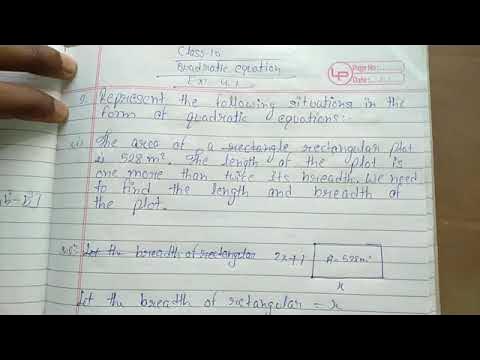 Class-10
Quadratic equation
Ex 4.1
LP Page No:
Date:
Represent the following situations in the
form of quadratic equations:-
The area of a rectangle rectangular plot
is 528m². The length of the plot is
one more than twice its breadth. We need
to find the length and breadth of
the plot.
Let the breadth of rectangular 2x+1 A=528m²
x
Let the breadth of rectangular = x